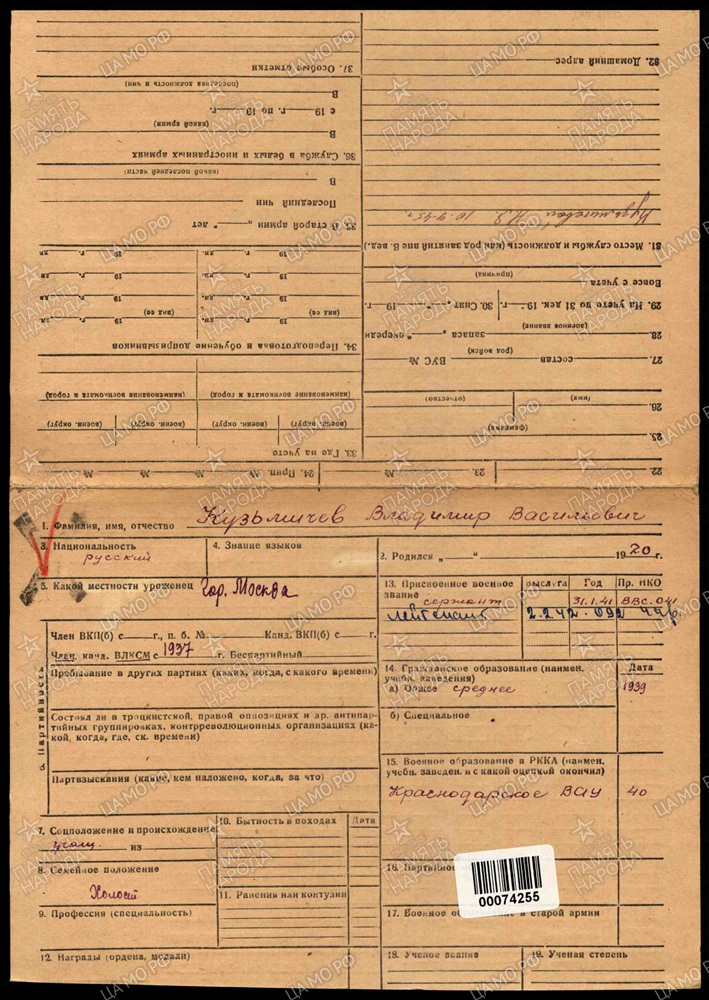 1. Фамилия, имя, отчество Кузьмичев Владимир Васильевич
3. Национальность
русский
4. Знание языков
2. Родился „ “ 1920 г.
5. Какой местности уроженец Гор. Москва
13. Присвоенное военное звание
выслуга Год Пр. НКО
сержант 31.1.41 ВВС.041
лейтенант 2.2.42
6. Партийность
Член ВКП(б) с г., п. б. № Канд. ВКП(б) с г.
Член, канд. ВЛКСМ с 1937 г. Беспартийный
Пребывание в других партиях (каких, когда, с какого времени)
Состоял ли в троцкистской, правой оппозициях и др. антипар-
тийных группировках, контрреволюционных организациях (ка-
кой, когда, где, ск. времени)
Партвзыскания (какие, кем наложено, когда, за что)
14. Гражданское образование (наимен.
учебн. заведения)
Дата
а) Общее среднее 1939
б) Специальное
15. Военное образование в РККА (наимен.
учебн. заведен. и с какой оценкой окончил)
Краснодарское ВАУ 40
7. Соцположение и происхождение
учащ. из
8. Семейное положение
Холост
9. Профессия (специальность)
10. Бытность в походах Дата
11. Ранения или контузии
12. Награды (ордена, медали)
16. Партийное
00074255
17. Военное в старой армии
18. Ученое звание
19. Ученая степень
22.
23. №
24. Прип. № №
25.
(фамилия)
26.
(имя) (отчество)
27. состав ВУС №
(род войск)
28. запаса „ “ очереди
(военное звание)
29. На учете по 31 дек. 19 г. 30. Снят „ “ 19 г.
Вовсе с учета
(причина)
31. Место службы и должность (или род занятий вне В. вед.)
32. Домашний адрес
33. Где на учете
(военн. округ) (военн. округ) (военн. округ) (военн. округ)
(наименование военкомата и город) (наименование военкомата и город)
34. Переподготовка и обучение допризывников
(вид ее) дн. (вид ее) дн.
19 г. дн. 19 г. дн.
19 г. дн. 19 г. дн.
19 г. дн. 19 г. дн.
35. В старой армии „ “ лет
Последний чин
В
(какой последней части)
36. Служба в белых и иностранных армиях
В
(какой армии)
с 19 г. по 19 г.
В
(последняя должность и чин)
37. Особые отметки
ЦАМО.РФ
ПАМЯТЬ НАРОДА